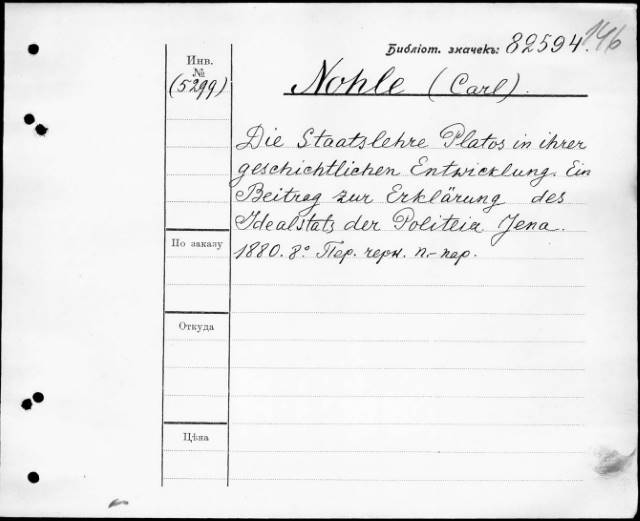 Библіот. значекъ: 82594. 146
Инв.
№
(5299)
Nohle (Carl).
Die Staatslehre Platos in ihrer
geschichtlichen Entwicklung. Ein
Beitrag zur Erklärung des
Idealstats der Politeia Jena.
По заказу
1880. 8° Пер. черн. п.-пер.
Откуда
Цѣна